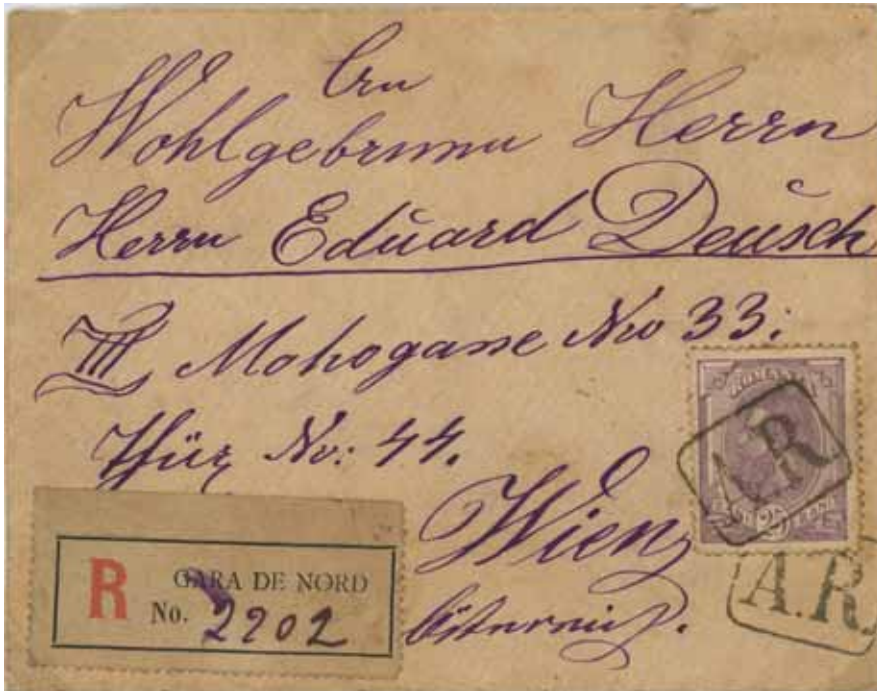 An
Wohlgebrnnn Herrn
Herrn Eduard Deusch
III Mohogasse Nro 33:
Thür No: 44.
Wien
Österreich.
R GARA DE NORD
No. 2202
A.R
25
A.R.